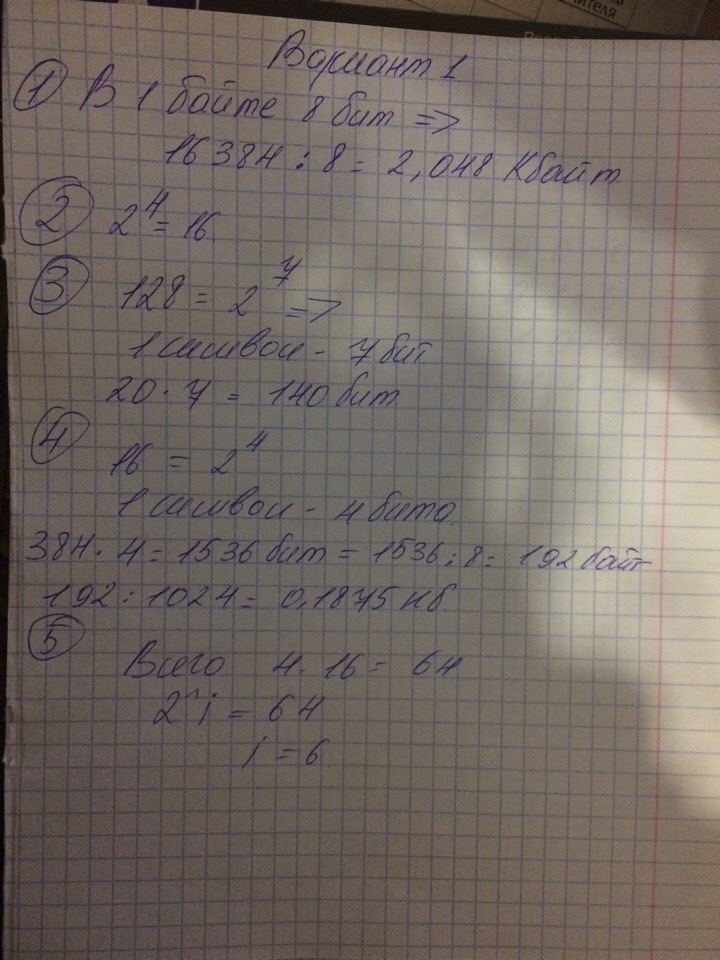 Вариант 1
① В 1 байте 8 бит =>
16384 : 8 = 2,048 Кбайт
② 2^4 = 16.
③ 128 = 2^7 =>
1 символ - 7 бит
20 · 7 = 140 бит.
④ 16 = 2^4
1 символ - 4 бита.
384 · 4 = 1536 бит = 1536 : 8 = 192 байт
192 : 1024 = 0,1875 кб
⑤ Всего 4 · 16 = 64
2^i = 64
i = 6